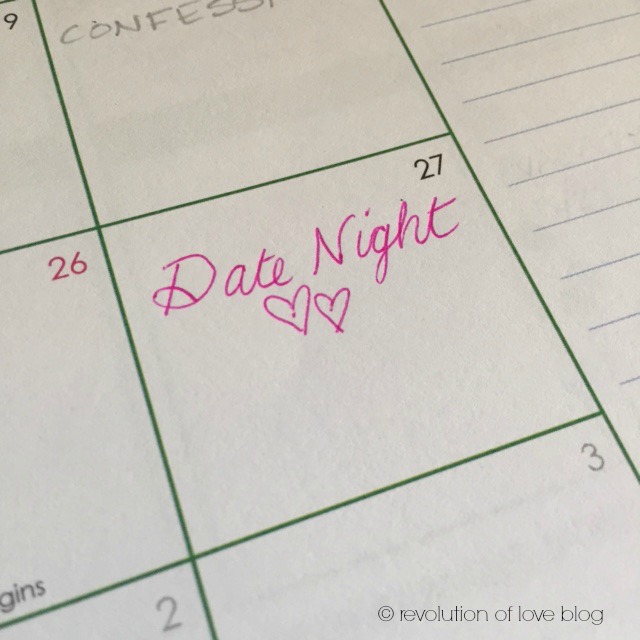 9
CONFESSI
27
26
Date Night
3
gins
2
© revolution of love blog